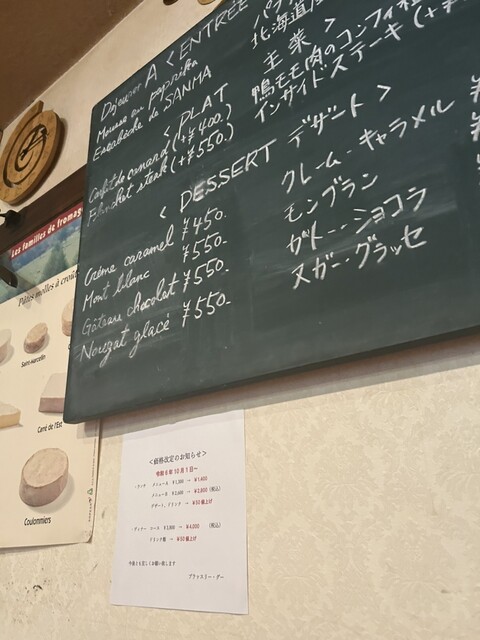 Dejeuner A <ENTRÉE
Mousse au paprika
Escabèche de SANMA
<PLAT
Confit de canard (+¥400.)
Flanchet steak (+¥550.)
<DESSERT デザート>
Crème caramel ¥450.
Mont blanc ¥550.
Gâteau chocolat ¥550-
Nougat glacé ¥550-
北海道
主菜>
鴨モモ肉のコンフィ
インサイドステーキ(+
クレーム・キャラメル
モンブラン
ガトー・ショコラ
ヌガー・グラッセ
Les familles de fromag
Pâtes molles à croûte
Saint-Marcellin
Carré de l'Est
Coulommiers
<価格改定のお知らせ>
令和6年10月1日~
・ランチ メニューA ¥1,300 → ¥1,400
メニューB ¥2,600 → ¥2,800 (税込)
デザート、ドリンク → ¥50値上げ
・ディナー コース ¥3,800 → ¥4,000 (税込)
ドリンク類 → ¥50値上げ
今後とも宜しくお願い致します
ブラッスリー・グー